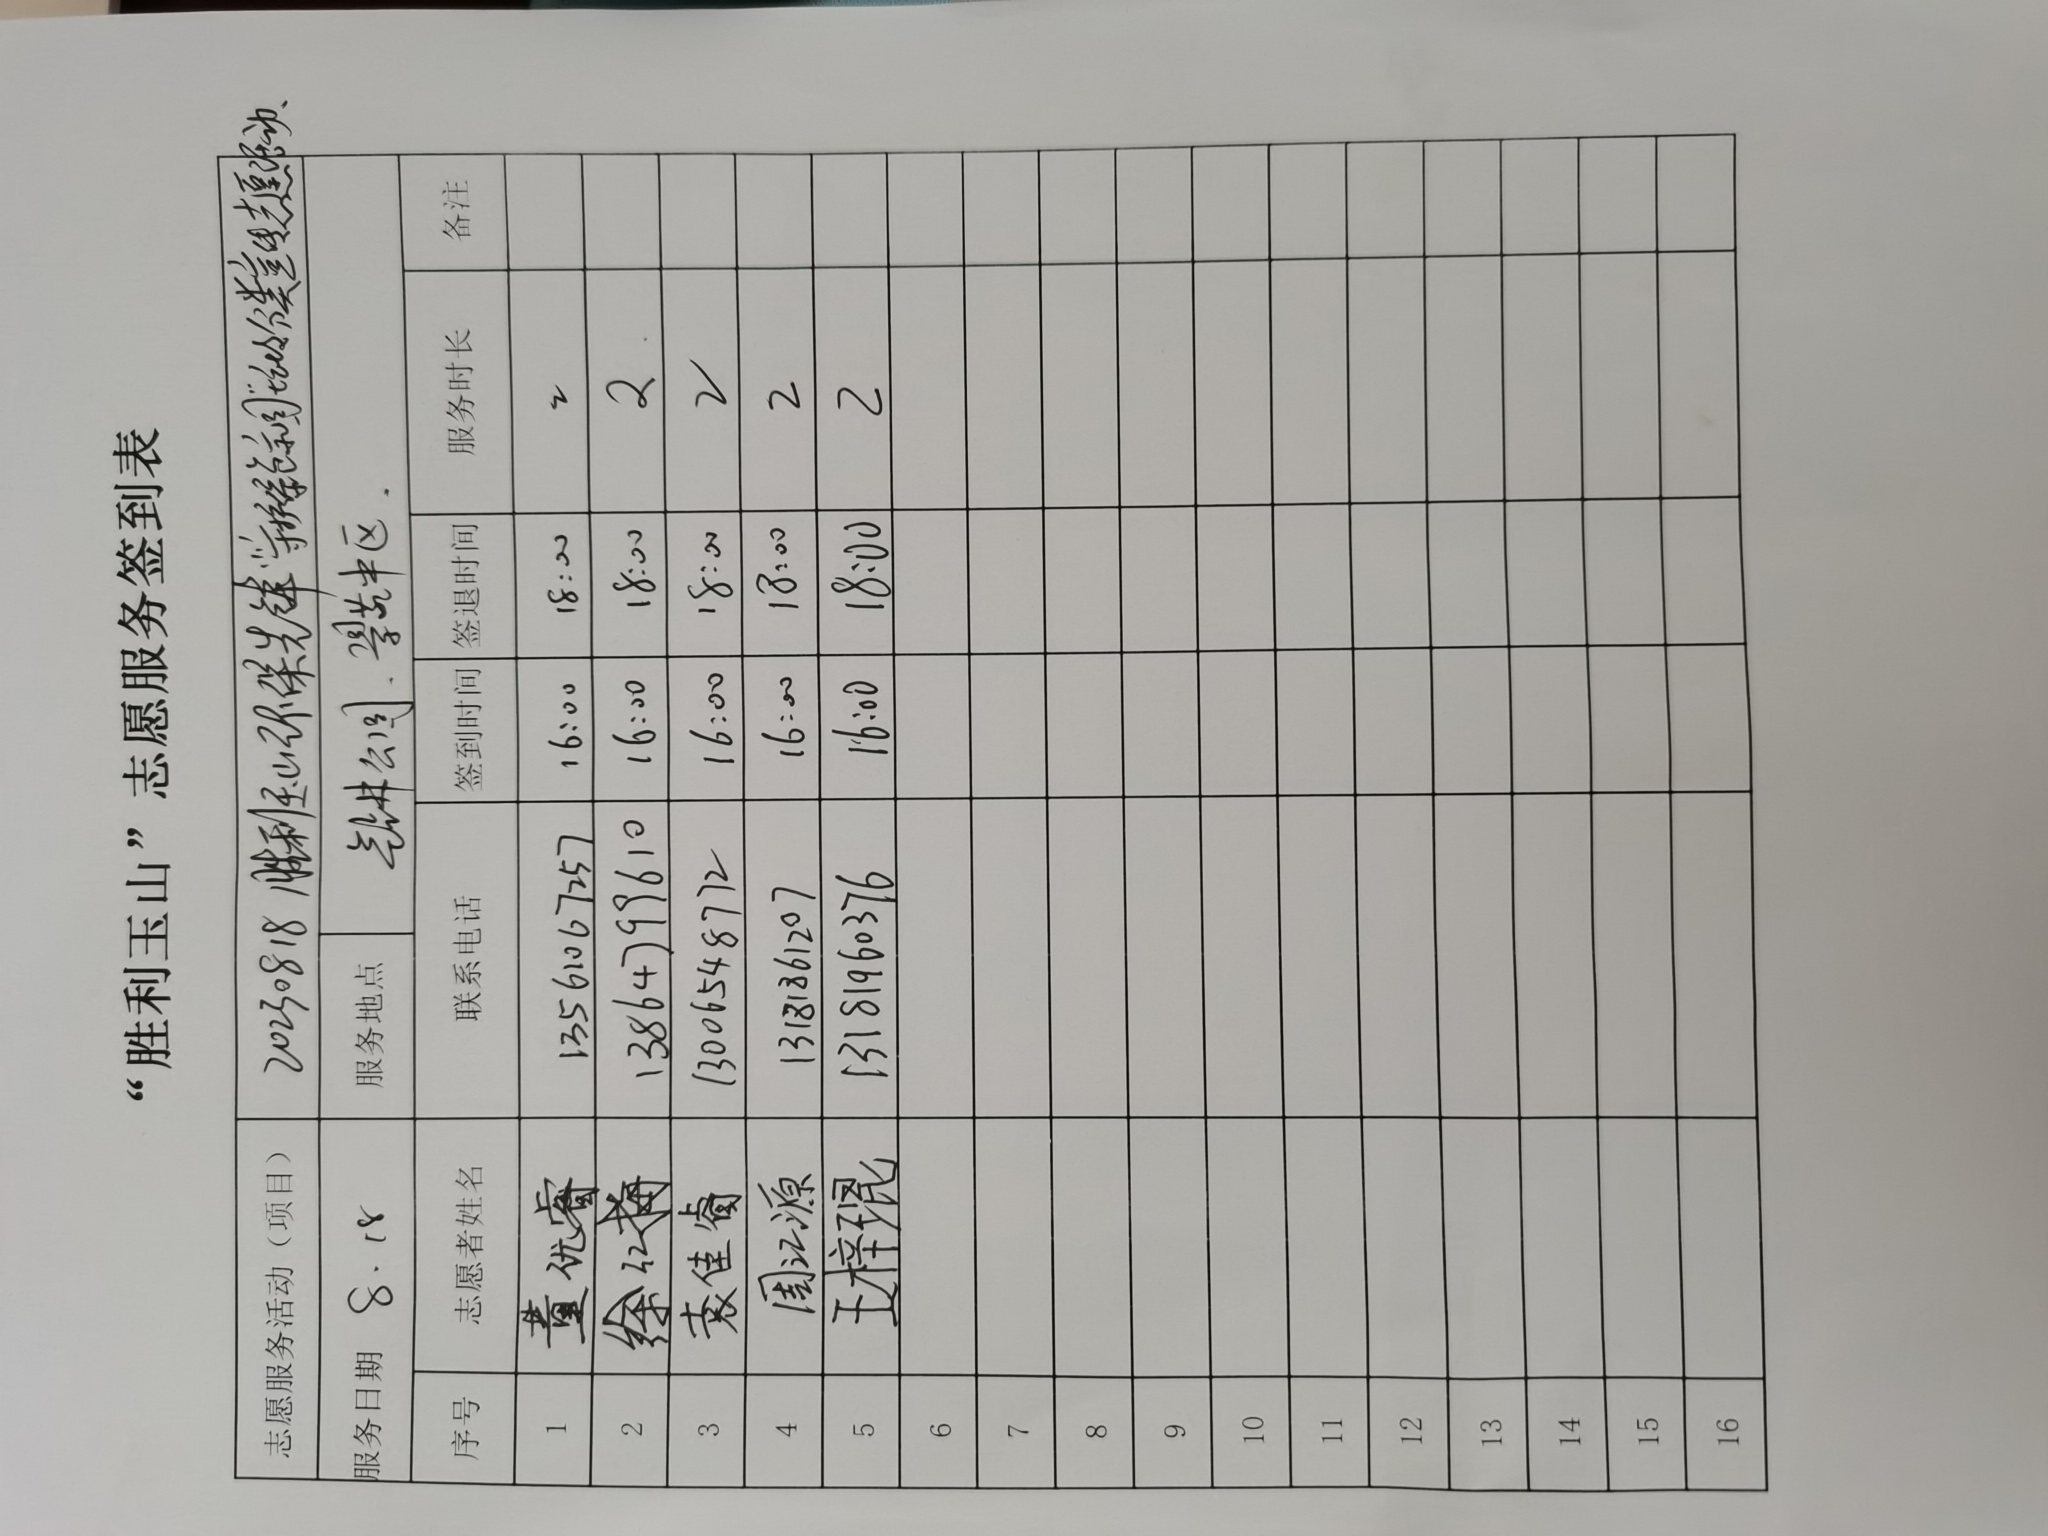 “胜利玉山”志愿服务签到表
志愿服务活动（项目） 20230818 胜利玉山环保先锋
服务日期 8.18 服务地点 钻井公园.景苑中区.
序号 志愿者姓名 联系电话 签到时间 签退时间 服务时长 备注
1 董优睿 13561067257 16:00 18:00 2
2 徐红梅 13864799610 16:00 18:00 2
3 袁佳睿 13006548772 16:00 18:00 2
4 周江源 13181861207 16:00 18:00 2
5 王梓琨 13181960376 16:00 18:00 2
6
7
8
9
10
11
12
13
14
15
16